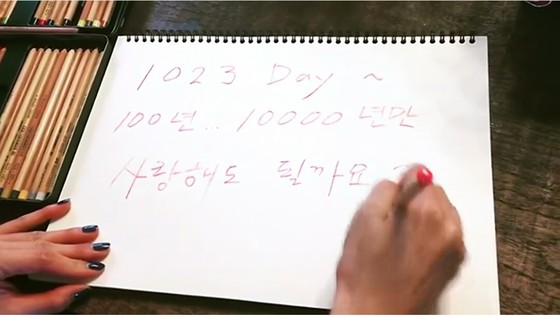 1023 Day ~
100년.. 10000년만
사랑해도 될까요?